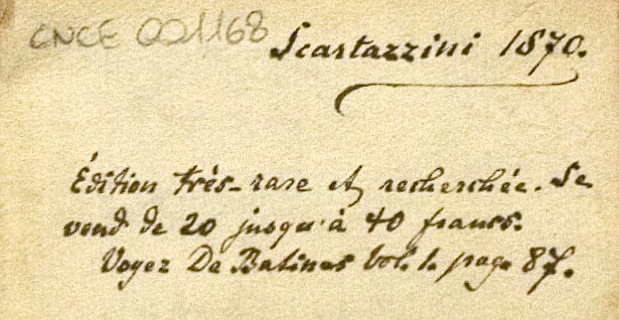 CNCE 001168
Scartazzini 1870.
Édition très-rare et recherchée. Se
vend de 20 jusqu'à 40 francs.
Voyez De Batines Vol. 1. page 87.